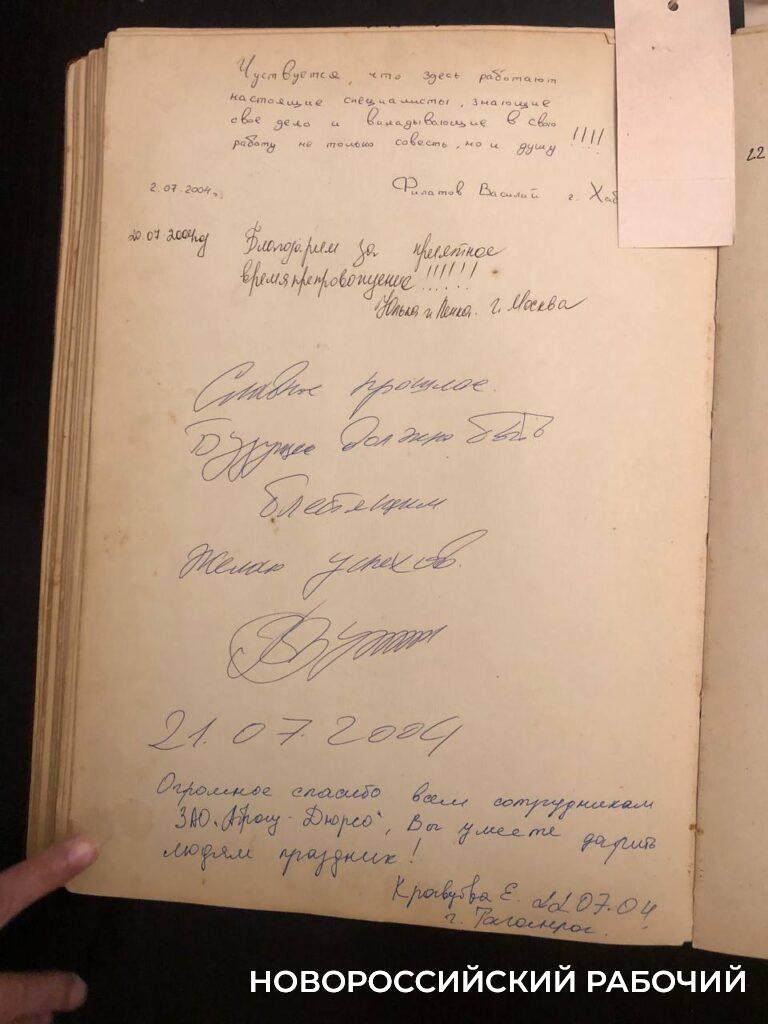 Чуствуется, что здесь работают
настоящие специалисты, знающие
свое дело и вкладывающие в свою
работу не только совесть, но и душу !!!!
2.07.2004г.
Филатов Василий г. Хаб
20.07.2004год
Благодарим за приятное
времяпрепровождение!!!!!!
и г. Москва
22
Славное прошлое.
Будущее должно быть
блестящим
Желаю успехов.
21.07.2004
Огромное спасибо всем сотрудникам
ЗАО „Абрау-Дюрсо“, Вы умеете дарить
людям праздник!
Е. 22.07.04
г. Таганрог.
НОВОРОССИЙСКИЙ РАБОЧИЙ